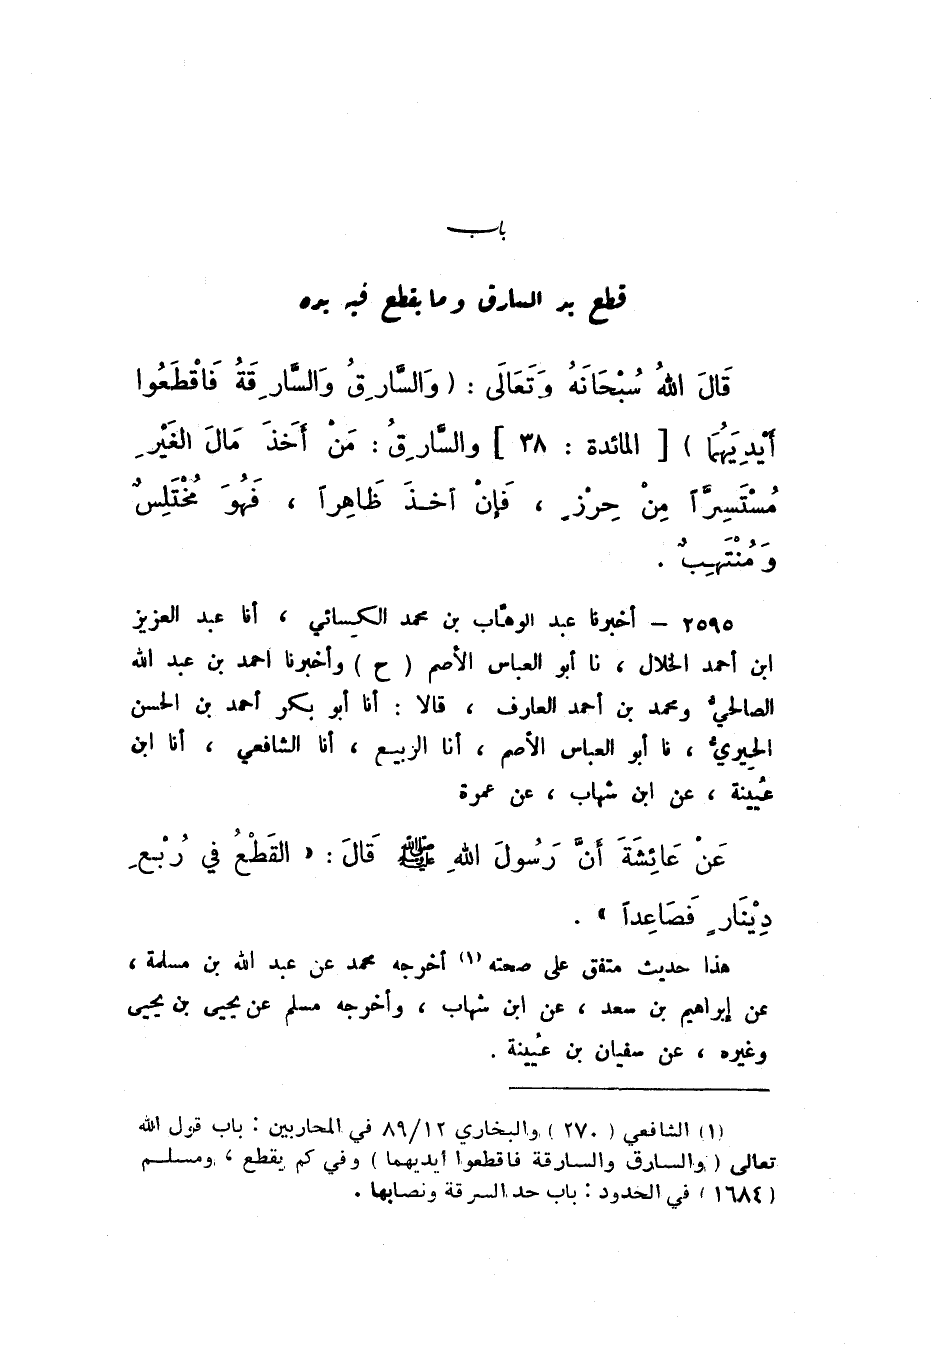 باب
قطع يد السارق وما يقطع فيه يده
قَالَ اللهُ سُبْحَانَهُ وَتَعَالَى : ( وَالسَّارِقُ وَالسَّارِقَةُ فَاقْطَعُوا
أَيْدِيَهُمَا ) [ المائدة : ٣٨ ] والسَّارِقُ : مَنْ أَخذَ مَالَ الغَيْرِ
مُسْتَسِرَّاً مِنْ حِرْزٍ ، فَإِنْ أخذَ ظَاهِراً ، فَهُوَ مُخْتَلِسٌ
وَمُنْتَهِبٌ .
٢٥٩٥ – أخبرنا عبد الوهّاب بن محمد الكِسائي ، أنا عبد العزيز
ابن أحمد الخلال ، نا أبو العباس الأصم ( ح ) وأخبرنا احمد بن عبد الله
الصالحيُّ ومحمد بن أحمد العارف ، قالا : أنا أبو بكر أحمد بن الحسن
الحِيريُّ ، نا أبو العباس الأصم ، أنا الربيع ، أنا الشافعي ، أنا ابن
عُيينة ، عن ابن شهاب ، عن عمرة
عَنْ عَائِشَةَ أَنَّ رَسُولَ اللهِ ﷺ قَالَ : « القَطْعُ في رُبْعِ
دِيْنَارٍ فَصَاعِداً » .
هذا حديث متفق على صحته (١) أخرجه محمد عن عبد الله بن مسلمة ،
عن إبراهيم بن سعد ، عن ابن شهاب ، وأخرجه مسلم عن يحيى بن يحيى
وغيره ، عن سفيان بن عُيينة .
(١) الشافعي ( ٢٧٠ ) والبخاري ٨٩/١٢ في المحاربين : باب قول الله
تعالى ( والسارق والسارقة فاقطعوا أيديهما ) وفي كم يقطع ، ومسلم
( ١٦٨٤ ) في الحدود : باب حد السرقة ونصابها .